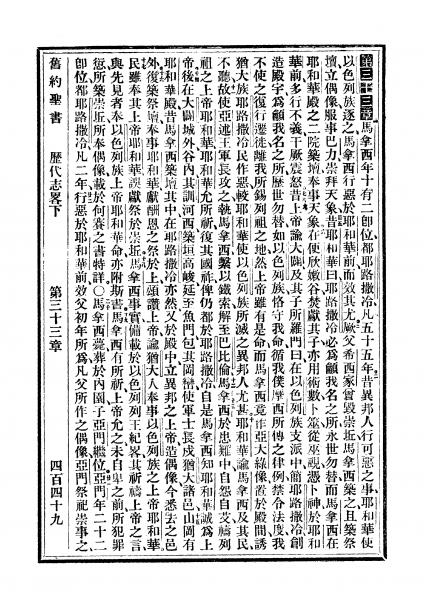 第三十三章馬拿西年十有二卽位都耶路撒冷凡五十五年昔異邦人行可惡之事耶和華使
以色列族逐之馬拿西行惡於耶和華前而效其尤厥父希西家嘗毀崇坵馬拿西築之且築祭
壇立偶像服事巴力崇拜天象昔耶和華曰耶路撒冷必爲籲我名之所永世勿替而馬拿西在
耶和華殿之二院築壇奉事天象在便欣嫩谷焚獻其子亦用術數卜筮從巫覡憑卜神於耶和
華前多行不義干厥震怒昔上帝諭大闢及其子所羅門曰在以色列族支派中簡耶路撒冷創
造殿宇爲籲我名之所歷世勿替如以色列族恪守我命循我僕摩西所傳之律例禁令法度我
不使之復行遷徙離我所錫列祖之地然上帝雖有是命而馬拿西竟作亞大綠像置於殿間誘
猶大族耶路撒冷民作惡較耶和華使以色列族所滅之異邦人尤甚耶和華諭馬拿西及其民
不聽故使亞述王軍長攻之執馬拿西繫以鐵索解至巴比倫馬拿西於患難中自怨自艾禱列
祖之上帝耶和華耶和華允所祈復其國祚俾仍都於耶路撒冷自是馬拿西知耶和華誠爲上
帝後在大闢城外谷內其訓河西築垣高峻延至魚門包其岡巒使軍士長戍猶大諸邑山岡有
耶和華殿昔馬拿西築壇其中在耶路撒冷亦然又於殿中立異邦之上帝造偶像今悉去之邑
外復築祭壇奉事耶和華獻酬恩之祭於上頌讚上帝諭猶大人奉事以色列族之上帝耶和華
民雖奉其上帝耶和華誤獻祭於崇坵馬拿西事實備載於以色列列王紀畧其祈禱上帝之言
與先見者奉以色列族上帝耶和華命亦附斯書馬拿西有所祈上帝允之未自卑之前所犯罪
愆所築崇坵所奉偶像載於何賽之書特詳○馬拿西薨葬於內園子亞門繼位亞門年二十二
卽位都耶路撒冷凡二年行惡於耶和華前效父初年所爲凡父所作之偶像亞門祭祀崇事之
舊約聖書 歷代志畧下 第三十三章 四百四十九